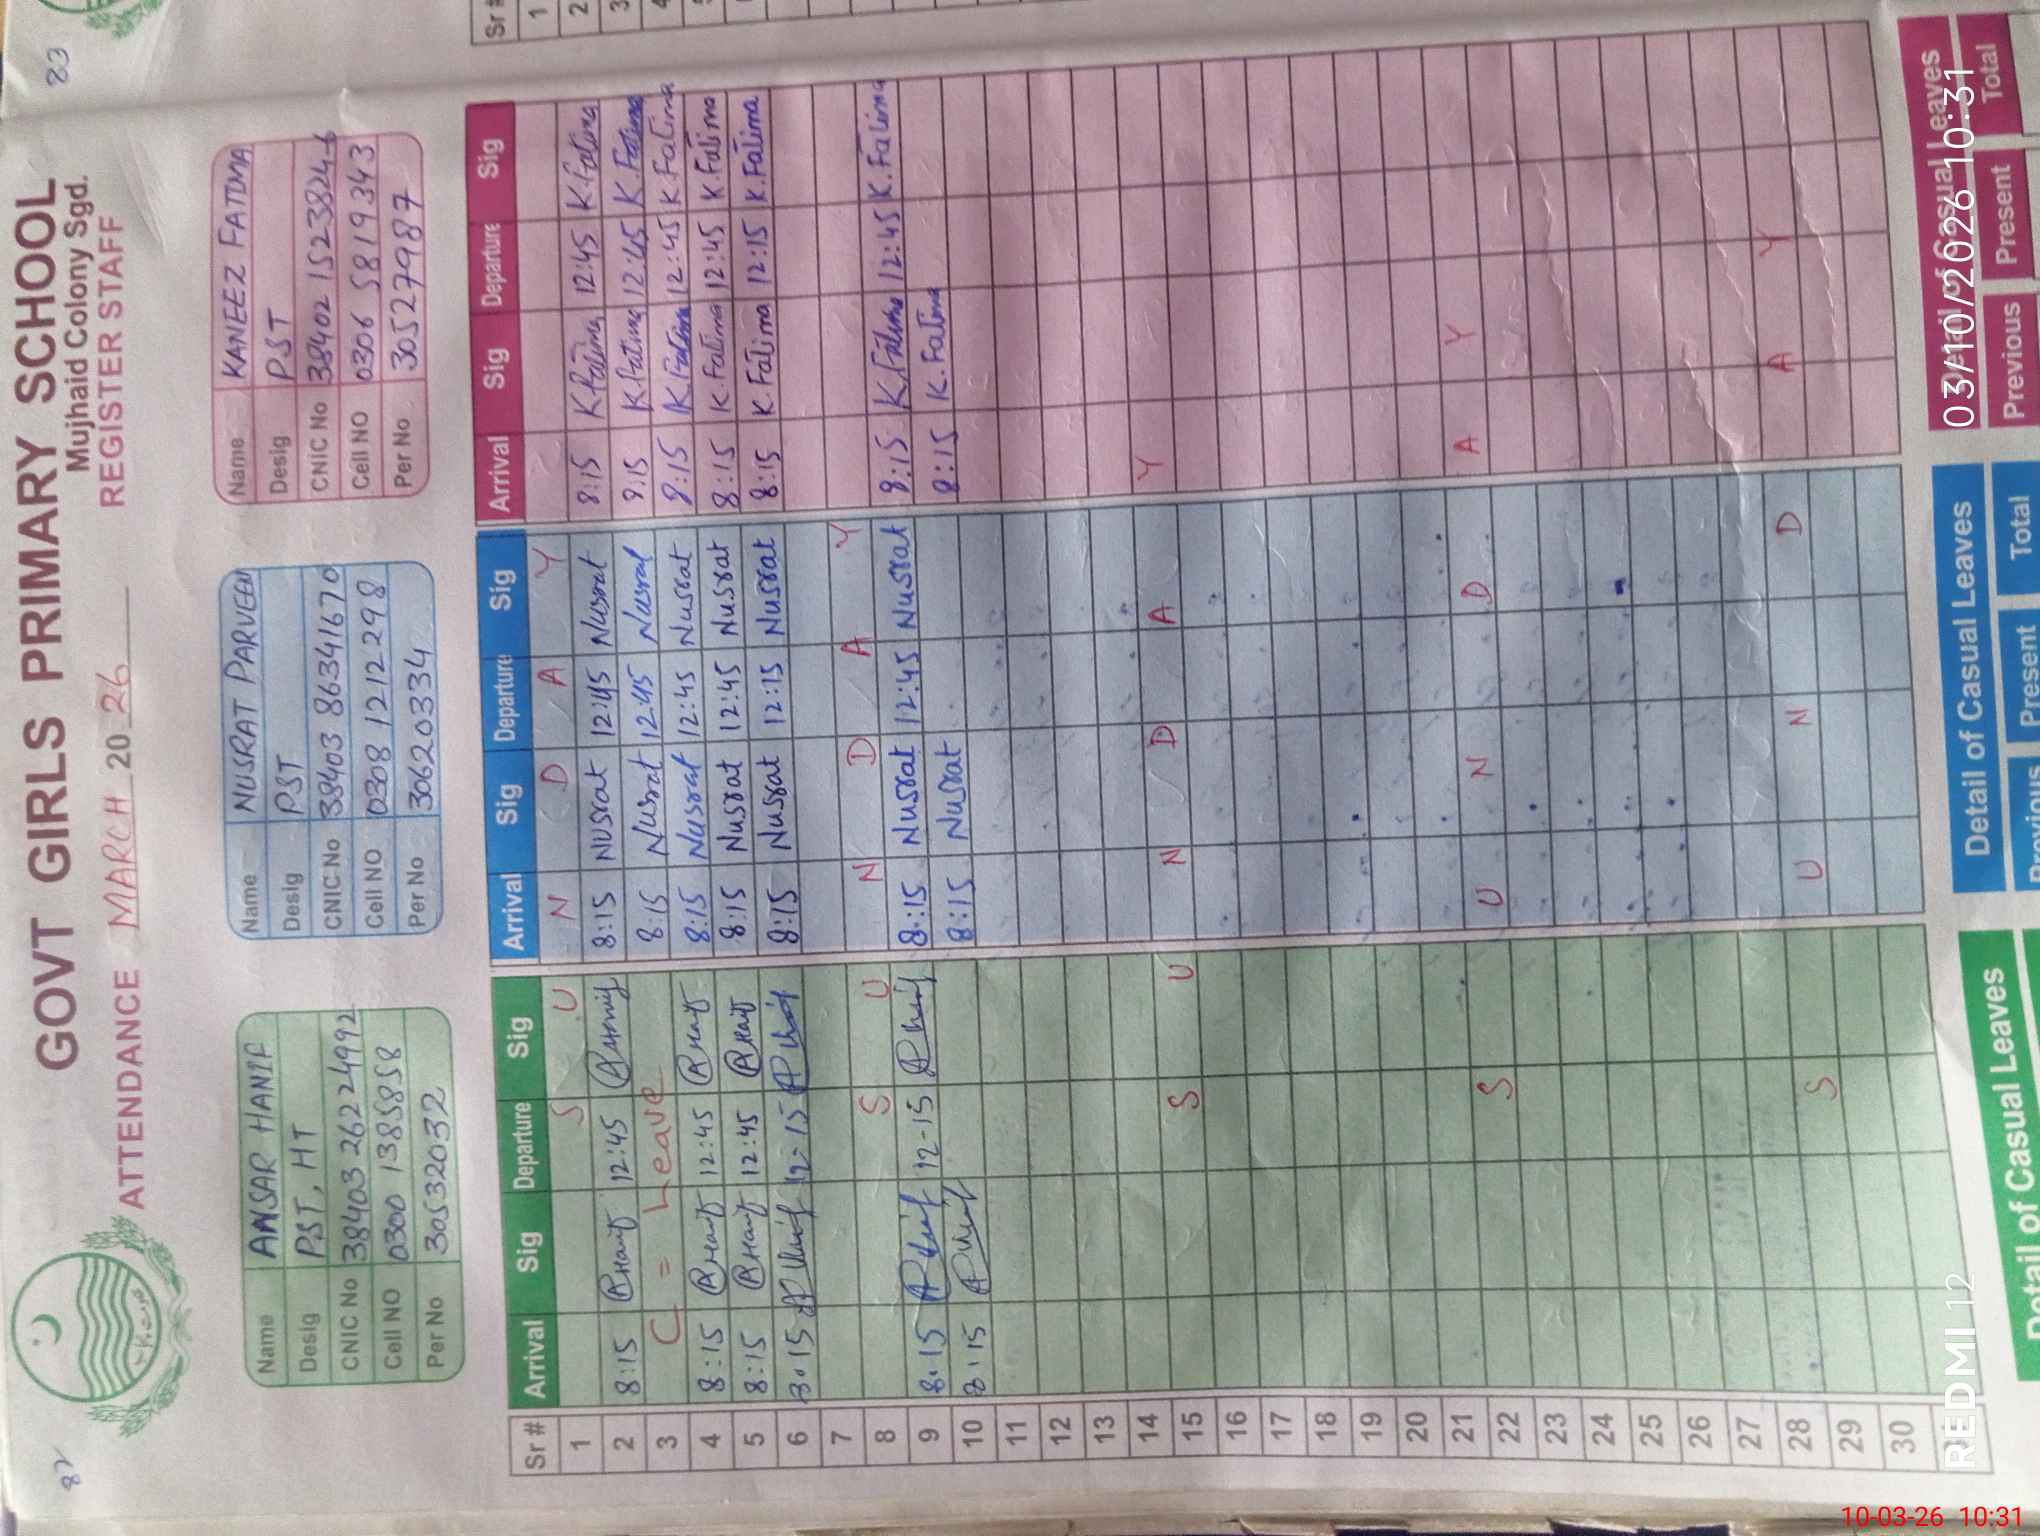 82
83
GOVT GIRLS PRIMARY SCHOOL
Mujhaid Colony Sgd.
ATTENDANCE MARCH 2026 REGISTER STAFF
Name ANSAR HANIF
Desig PST, HT
CNIC No 38403 26224992
Cell NO 0300 1385858
Per No 30532032
Name NUSRAT PARVEEN
Desig PST
CNIC No 38403 86341670
Cell NO 0308 1212298
Per No 30620334
Name KANEEZ FATIMA
Desig PST
CNIC No 38402 15238246
Cell NO 0306 5819343
Per No 30527987
Sr # Arrival Sig Departure Sig Arrival Sig Departure Sig Arrival Sig Departure Sig
1 S U N D A Y
2 8:15 12:45 8:15 Nusrat 12:45 Nusrat 8:15 K.Fatima 12:45 K.Fatima
3 C = Leave 8:15 Nusrat 12:45 Nusrat 8:15 K.Fatima 12:45 K.Fatima
4 8:15 RHanif 12:45 8:15 Nusrat 12:45 Nusrat 8:15 K.Fatima 12:45 K.Fatima
5 8:15 RHanif 12:45 8:15 Nusrat 12:45 Nusrat 8:15 K.Fatima 12:45 K.Fatima
6 8.15 12-15 8:15 Nusrat 12:15 Nusrat 8:15 K.Fatima 12:15 K.Fatima
7
8 S U N D A Y
9 8.15 12-15 8:15 Nusrat 12:45 Nusrat 8:15 K.Fatima 12:45 K.Fatima
10 8.15 8:15 Nusrat 8:15 K.Fatima
11
12
13
14
15 S U N D A Y
16
17
18
19
20
21
22 S U N D A Y
23
24
25
26
27
28
29 S U N D A Y
30
Detail of Casual Leaves
Detail of Casual Leaves
Previous Present Total
Detail of Casual Leaves
Previous Present Total
Sr #
1
2
3
4
REDMI 12
03/10/2026 10:31
10-03-26 10:31